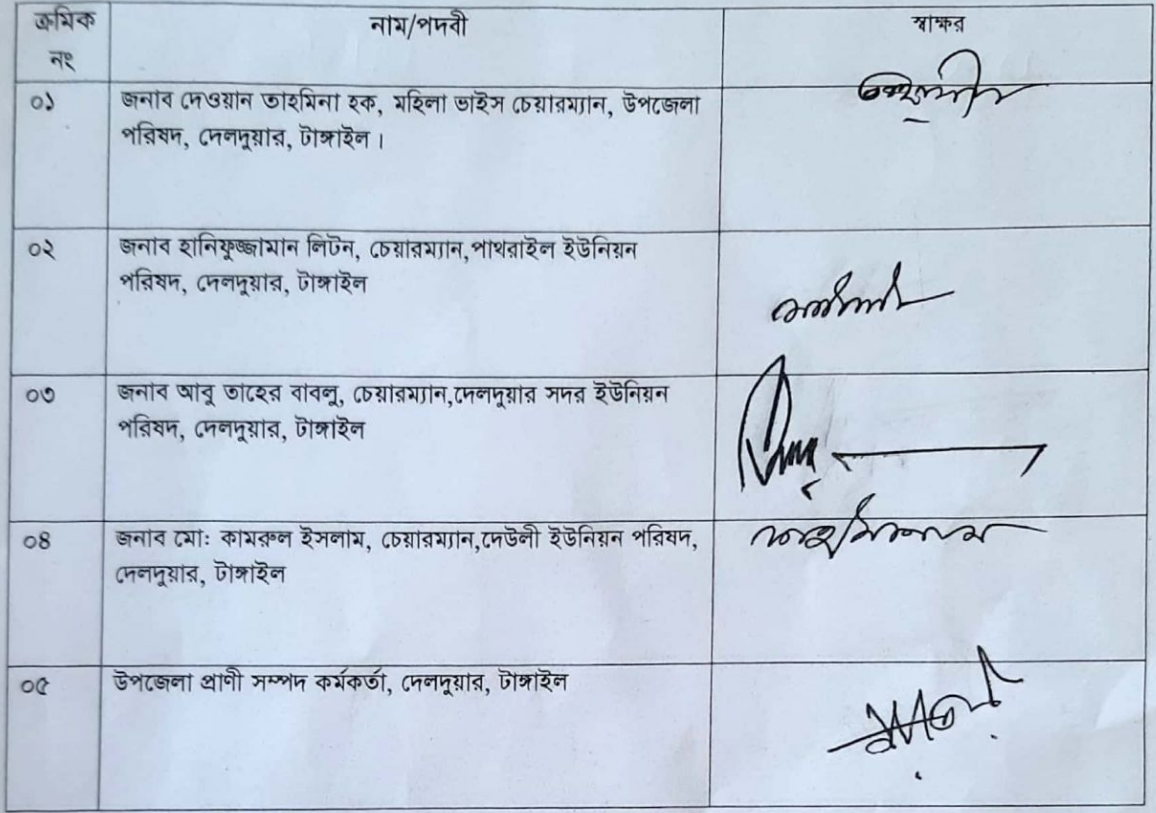 ক্রমিক নাম/পদবী স্বাক্ষর
নং
০১ জনাব দেওয়ান তাহমিনা হক, মহিলা ভাইস চেয়ারম্যান, উপজেলা
পরিষদ, দেলদুয়ার, টাঙ্গাইল ।
০২ জনাব হানিফুজ্জামান লিটন, চেয়ারম্যান,পাথরাইল ইউনিয়ন
পরিষদ, দেলদুয়ার, টাঙ্গাইল
০৩ জনাব আবু তাহের বাবলু, চেয়ারম্যান,দেলদুয়ার সদর ইউনিয়ন
পরিষদ, দেলদুয়ার, টাঙ্গাইল
০৪ জনাব মো: কামরুল ইসলাম, চেয়ারম্যান,দেউলী ইউনিয়ন পরিষদ,
দেলদুয়ার, টাঙ্গাইল
০৫ উপজেলা প্রাণী সম্পদ কর্মকর্তা, দেলদুয়ার, টাঙ্গাইল